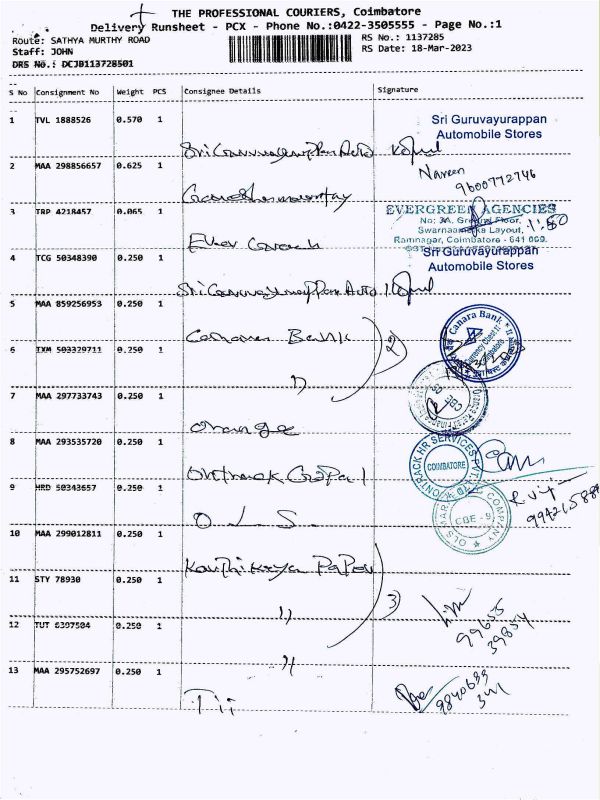 THE PROFESSIONAL COURIERS, Coimbatore
Delivery Runsheet - PCX - Phone No.:0422-3505555 - Page No.:1
Route: SATHYA MURTHY ROAD RS No.: 1137285
Staff: JOHN RS Date: 18-Mar-2023
DRS No.: DCJB113728501
S No Consignment No Weight PCS Consignee Details Signature
1 TVL 1888526 0.570 1
Sri Guruvayurappan
Automobile Stores
Sri Guruvayurappan Auto
2 MAA 298856657 0.625 1
Naveen
9600772746
3 TRP 4218457 0.065 1
EVERGREEN AGENCIES
No: 3A, Ground Floor,
Swarnaambika Layout,
Ramnagar, Coimbatore - 641 009.
4 TCG 50348390 0.250 1
Sri Guruvayurappan
Automobile Stores
Sri Guruvayurappan Auto
5 MAA 859256953 0.250 1
Canara Bank 2
Canara Bank
6 IXM 503329711 0.250 1
"
7 MAA 297733743 0.250 1
Orange
8 MAA 293535720 0.250 1
ONTRACK HR SERVICES PVT
COIMBATORE
Ontrack
9 HRD 50343657 0.250 1
O L S
OLS MAR COMPANY
CBE - 9
10 MAA 299012811 0.250 1
Karthikeya Paper 3
11 STY 78930 0.250 1
"
99655
39854
12 TUT 6397584 0.250 1
"
13 MAA 295752697 0.250 1
Tii